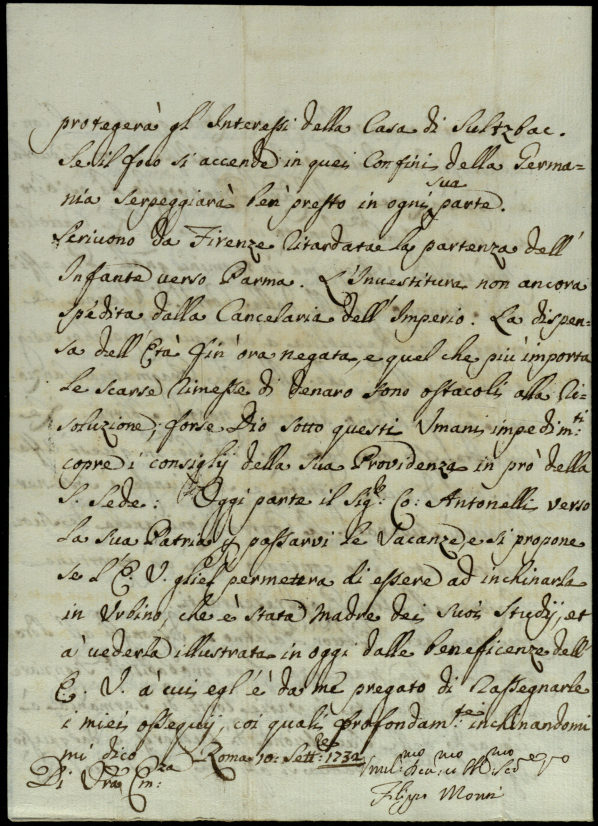 protegerà gl' Interessi della Casa di Sultzbac.
Se il foco si accende in quei Confini della Germa=
nia serpeggiarà ben presto in ogni sua parte.
Scrivono da Firenze ritardata la partenza dell'
Infante verso Parma. L'Investitura non ancora
spedita dalla Cancelaria dell' Imperio. La dispen=
sa dell' Età fin' ora negata, e quel che più importa
le scarse rimesse di denaro sono ostacoli alla ri=
soluzione; forse Dio sotto questi Umani impedim:ti
copre i consiglij della sua Providenza in prò della
S. Sede: Oggi parte il Sig:r Co: Antonelli verso
la sua Patria p passarvi le Vacanze e si propone
se l'E. V. gliel permetera di essere ad inchinarla
in Urbino, che è stata Madre dei suoi Studij, et
à vederla illustrata in oggi dalle beneficenze dell'
E. V. à cui egl' è da me pregato di rassegnarle
i miei ossequij, coi quali profondam:te inchinandomi
mi dico Roma 10: Sett:re 1732
Di Vra Em:za
Filippo Monti